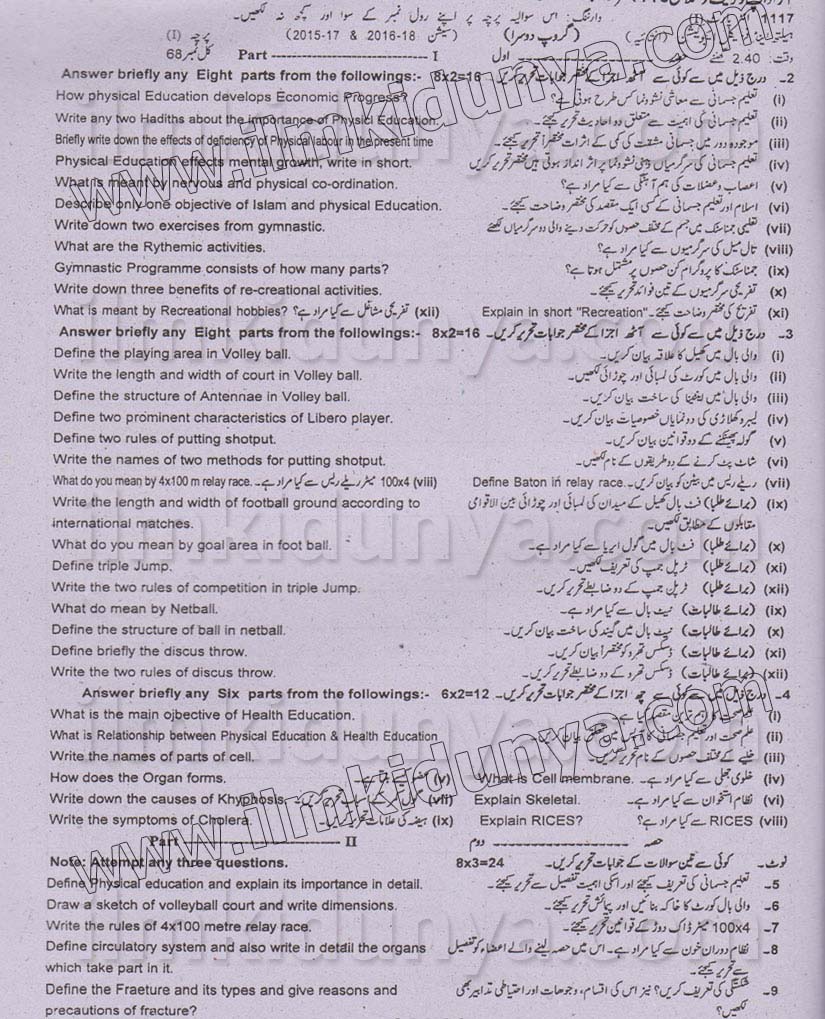 1117 وارننگ: اس سوالیہ پرچہ پر اپنے رول نمبر کے سوا اور کچھ نہ لکھیں۔
پرچہ (I) (سیشن 18-2016 & 17-2015) (گروپ دوسرا)
کل نمبر 68 Part ---------------- I حصہ اول وقت: 2.40 گھنٹے
Answer briefly any Eight parts from the followings:- 8x2=16 درج ذیل میں سے کوئی سے آٹھ اجزا کے مختصر جوابات تحریر کریں۔ -2
How physical Education develops Economic Progress? تعلیم جسمانی سے معاشی نشوونما کس طرح ہوتی ہے؟ (i)
Write any two Hadiths about the importance of Physicl Education. تعلیم جسمانی کی اہمیت سے متعلق دو احادیث تحریر کیجئے۔ (ii)
Briefly write down the effects of deficiency of Physical labour in the present time موجودہ دور میں جسمانی مشقت کی کمی کے اثرات مختصراً تحریر کیجئے۔ (iii)
Physical Education effects mental growth, write in short. تعلیم جسمانی کی سرگرمیاں ذہنی نشوونما پر اثر انداز ہوتی ہیں مختصر تحریر کریں (iv)
What is meant by nervous and physical co-ordination. اعصاب و عضلات کی ہم آہنگی سے کیا مراد ہے؟ (v)
Describe only one objective of Islam and physical Education. اسلام اور تعلیم جسمانی کے کسی ایک مقصد کی مختصر وضاحت کیجئے۔ (vi)
Write down two exercises from gymnastic. تعلیمی جمناسٹک میں جسم کے مختلف حصوں کو حرکت دینے والی دو سرگرمیاں لکھئے (vii)
What are the Rythemic activities. تال میل کی سرگرمیوں سے کیا مراد ہے؟ (viii)
Gymnastic Programme consists of how many parts? جمناسٹک کا پروگرام کن حصوں پر مشتمل ہوتا ہے؟ (ix)
Write down three benefits of re-creational activities. تفریحی سرگرمیوں کے تین فوائد تحریر کیجئے۔ (x)
What is meant by Recreational hobbies? تفریحی مشاغل سے کیا مراد ہے؟ (xii) Explain in short "Recreation". تفریح کی مختصر وضاحت کیجئے۔ (xi)
Answer briefly any Eight parts from the followings:- 8x2=16 درج ذیل میں سے کوئی سے آٹھ اجزا کے مختصر جوابات تحریر کریں۔ -3
Define the playing area in Volley ball. والی بال میں کھیل کا علاقہ بیان کریں۔ (i)
Write the length and width of court in Volley ball. والی بال میں کورٹ کی لمبائی اور چوڑائی لکھیں۔ (ii)
Define the structure of Antennae in Volley ball. والی بال میں اینٹینا کی ساخت بیان کریں۔ (iii)
Define two prominent characteristics of Libero player. لیبرو کھلاڑی کی دو نمایاں خصوصیات بیان کریں۔ (iv)
Define two rules of putting shotput. گولہ پھینکنے کے دو قوانین بیان کریں۔ (v)
Write the names of two methods for putting shotput. شاٹ پٹ کرنے کے دو طریقوں کے نام لکھیں۔ (vi)
What do you mean by 4x100 m relay race. 100x4 میٹر ریلے ریس سے کیا مراد ہے۔ (viii) Define Baton in relay race. ریلے ریس میں بیٹن کو بیان کریں۔ (vii)
Write the length and width of football ground according to (برائے طلبا) فٹ بال کھیل کے میدان کی لمبائی اور چوڑائی بین الاقوامی (ix)
international matches. مقابلوں کے مطابق لکھیں۔
What do you mean by goal area in foot ball. (برائے طلبا) فٹ بال میں گول ایریا سے کیا مراد ہے۔ (x)
Define triple Jump. (برائے طلبا) ٹرپل جمپ کی تعریف لکھیں۔ (xi)
Write the two rules of competition in triple Jump. (برائے طلبا) ٹرپل جمپ کے دو ضابطے تحریر کریں۔ (xii)
What do mean by Netball. (برائے طالبات) نیٹ بال سے کیا مراد ہے۔ (ix)
Define the structure of ball in netball. (برائے طالبات) نیٹ بال میں گیند کی ساخت بیان کریں۔ (x)
Define briefly the discus throw. (برائے طالبات) ڈسکس تھرو کو مختصراً بیان کریں۔ (xi)
Write the two rules of discus throw. (برائے طالبات) ڈسکس تھرو کے دو ضابطے تحریر کریں۔ (xii)
Answer briefly any Six parts from the followings:- 6x2=12 درج ذیل میں سے کوئی سے چھ اجزا کے مختصر جوابات تحریر کریں۔ -4
What is the main ojbective of Health Education. (i)
What is Relationship between Physical Education & Health Education (ii)
Write the names of parts of cell. خلیے کے مختلف حصوں کے نام تحریر کریں۔ (iii)
How does the Organ forms. (v) What is Cell membrane. خلوی جھلی سے کیا مراد ہے۔ (iv)
Write down the causes of Khyphosis. (vii) Explain Skeletal. نظام استخوان سے کیا مراد ہے۔ (vi)
Write the symptoms of Cholera. ہیضہ کی علامات تحریر کریں۔ (ix) Explain RICES? RICES سے کیا مراد ہے؟ (viii)
Part ---------------- II حصہ ---------------- دوم
Note: Attempt any three questions. 8x3=24 کوئی سے تین سوالات کے جوابات تحریر کریں۔ نوٹ۔
Define Physical education and explain its importance in detail. تعلیم جسمانی کی تعریف کیجئے اور اسکی اہمیت تفصیل سے تحریر کیجئے۔ -5
Draw a sketch of volleyball court and write dimensions. والی بال کورٹ کا خاکہ بنائیں اور پیمائش تحریر کیجئے۔ -6
Write the rules of 4x100 metre relay race. 100x4 میٹر ڈاک دوڑ کے قوانین تحریر کیجئے۔ -7
Define circulatory system and also write in detail the organs نظام دوران خون سے کیا مراد ہے۔ اس میں حصہ لینے والے اعضاء کو تفصیل -8
which take part in it. سے تحریر کیجئے۔
Define the Fraeture and its types and give reasons and شکستگی کی تعریف کریں؟ نیز اس کی اقسام، وجوہات اور احتیاطی تدابیر بھی -9
precautions of fracture? لکھیں؟
www.ilmkidunya.com
ilmkidunya.com
ilmkidunya.com
www.ilmkidunya.com
ilmkidunya.com